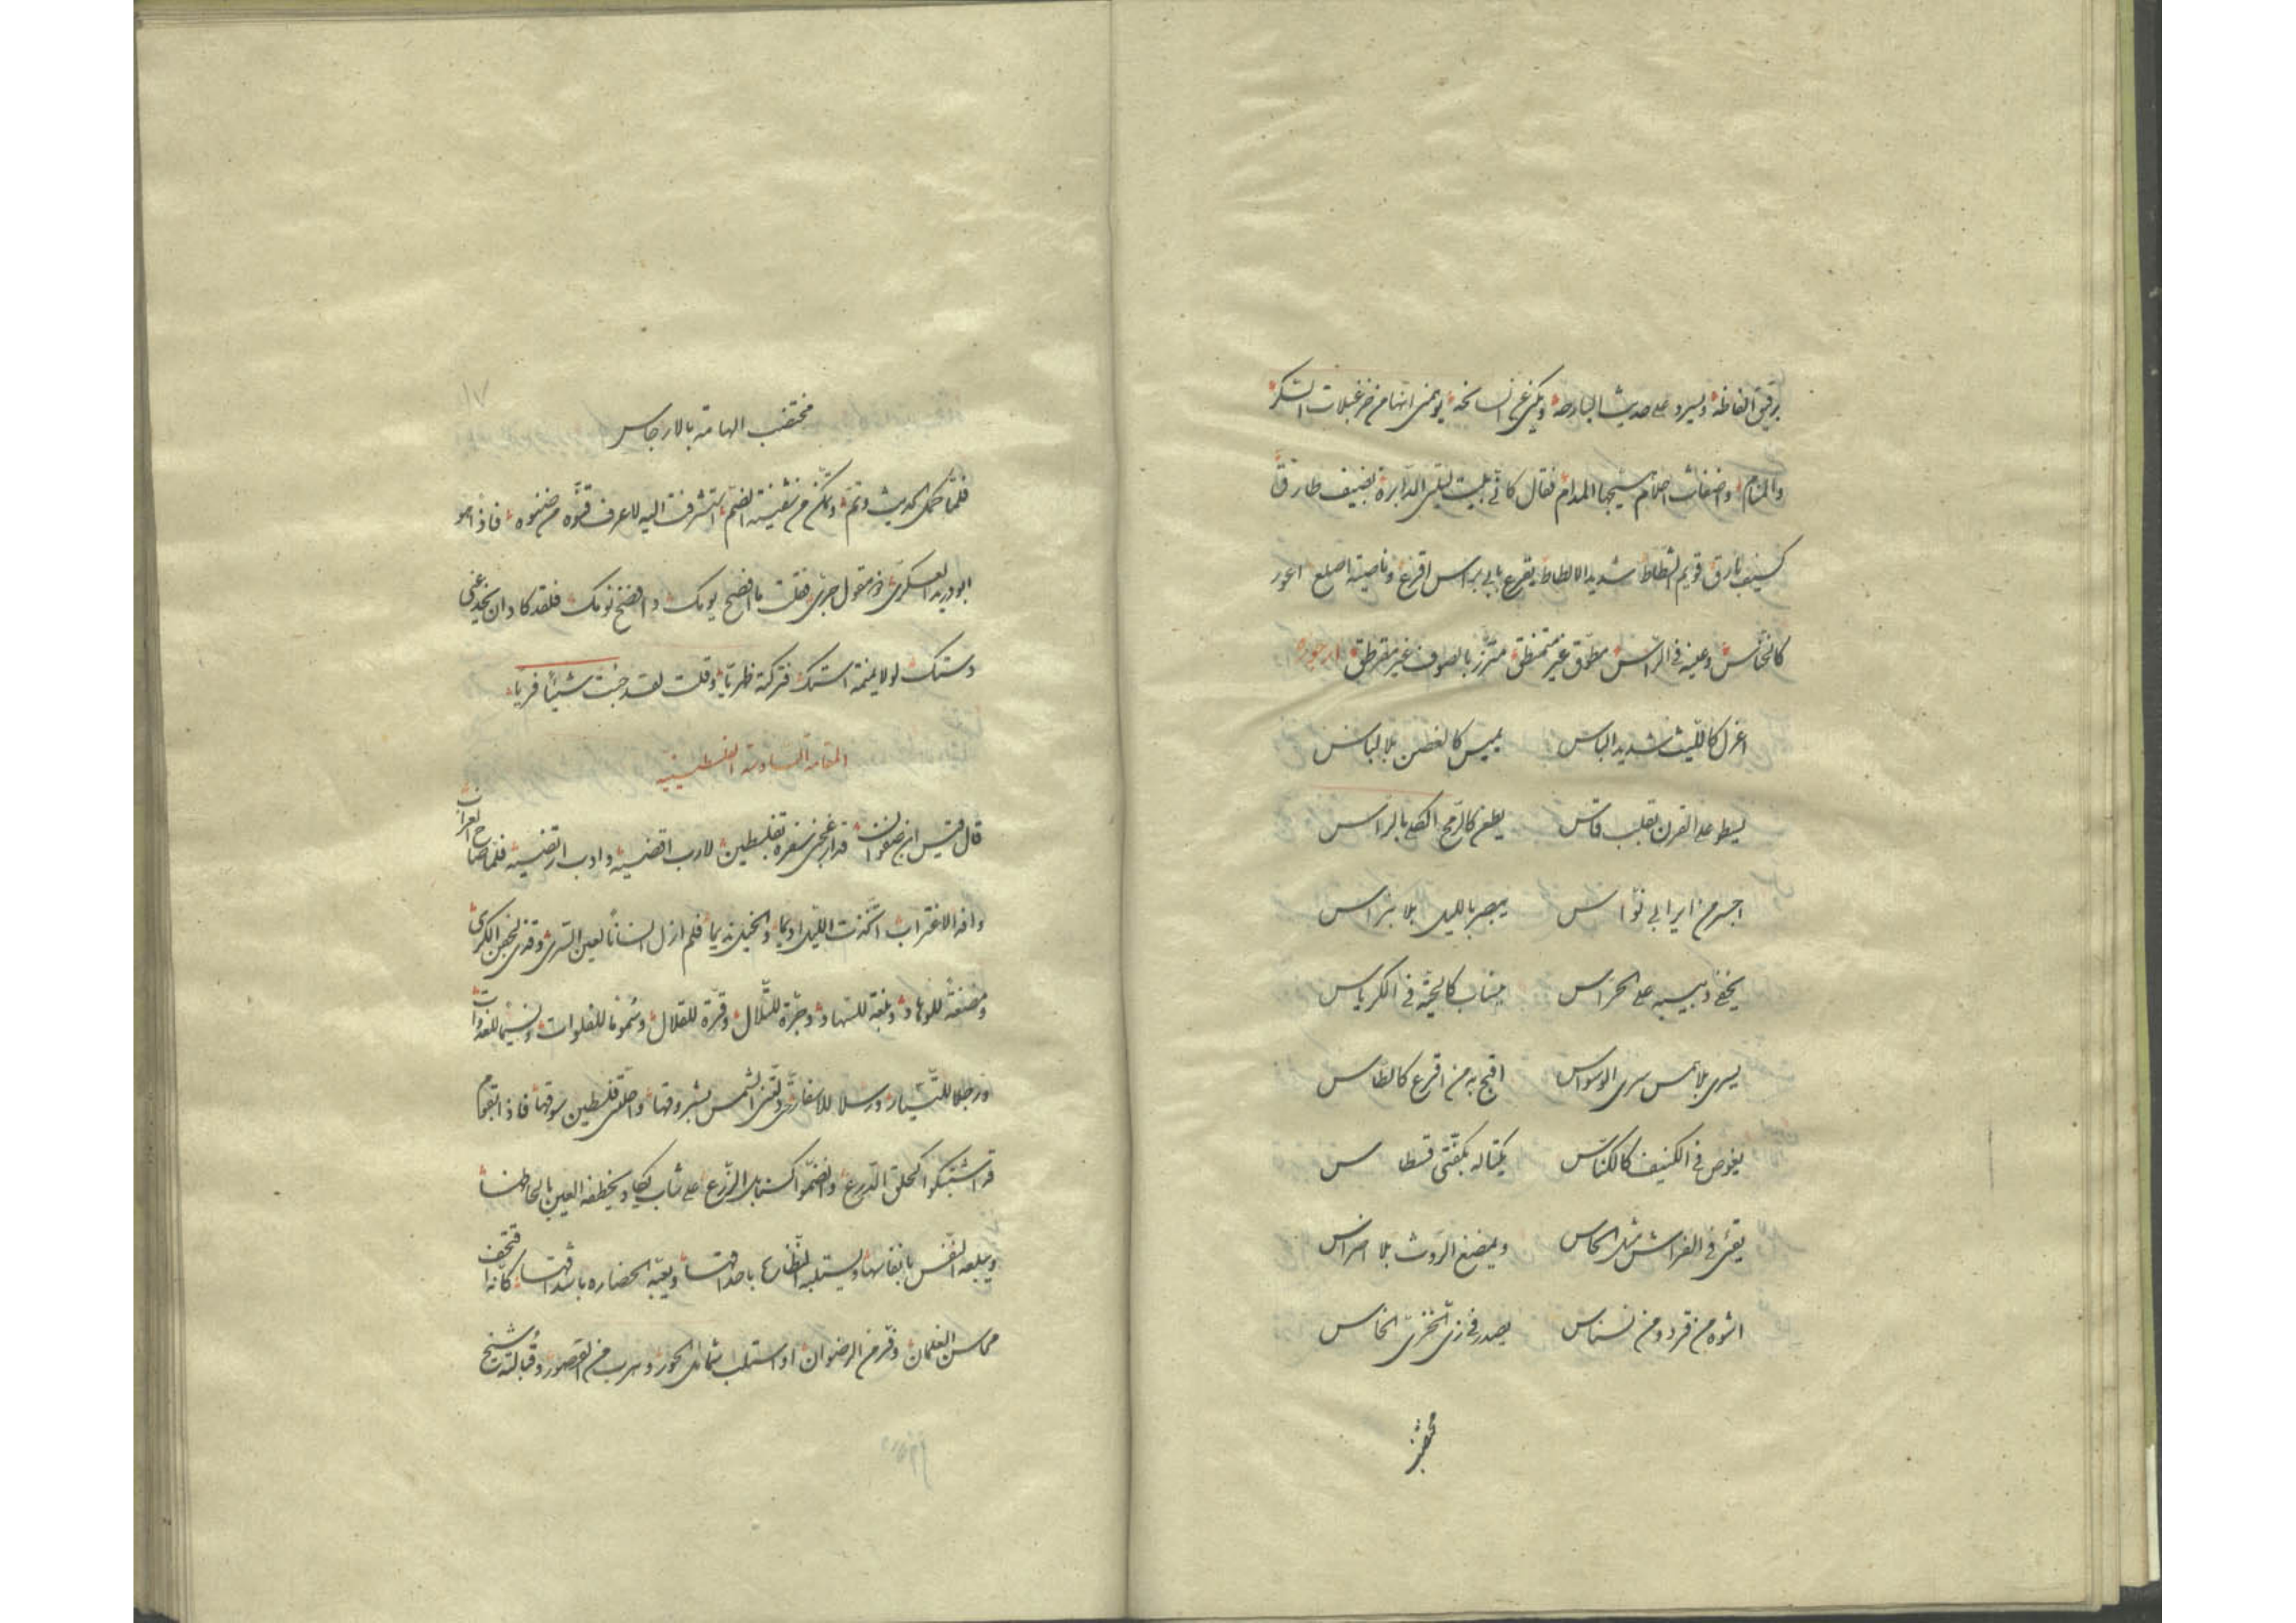 برقيق الفاظه ويسرد على حديث البارحة ويكنى عن السانحة يوهمنى انها من خزعبلات السكر
والمنام واضغاث احلام المدام فقال كانى بليت ليلتى الدابرة بضيف طارق
كسيف بارق قويم الشطاط شديد الالطاط يقرع بابى براس اقرع وناصية اصلع اعور
كالنخاس وعينه فى الراس مطوق غير متمنطق متزر بالصوف غير مقرطق ارجوزة
اعزل كالليث شديد الباس يميس كالغصن بلا لباس
يسطو على القرن بقلب قاس يطعن كالرمح الكمى بالراس
اجسر من اير ابى نواس يبصر بالليل بلا نبراس
يخفى دبيبه على الحراس ينساب كالحية فى الكرباس
يسرى بلا حس سرى الوسواس اقبح به من اقرع كالطاس
يغوص فى الكنيف كالكناس يكتاله بكفتى قسطاس
يقئ فى الفراش مثل الحاس ويمضغ الروث بلا اضراس
اشوه من قرد ومن نسناس يصدر فى زى الخزى الخاس
مختضب
١٧
مختضب الهامة بالارجاس
فلما كمل الحديث وتم وتمكن من نفثيته الضم استشرفت اليه لاعرف قنوه من صنوه فاذا هو
ابو دريد العسكرى ذو مقول جرى فقلت ما افضح يومك وافضخ نومك فلقد كاد ان يخدعنى
دستك لولا يمنة استك فتركته ظهريا وقلت لقد جئت شيئا فريا
المقامة السادسة الفلسطينية
قال قيس ابن صفوان قد ازعجنى سفرة بفلسطين لارب اقضيه وادب ارتضيه فلما صاح الغراب
وافد الاغتراب اتخذت الليل اديما والخيل نديما فلم ازل انسانا لعين السرى وقذى لجفن الكرى
ومضغة للوهاد وبلغة للسهاد وجرة للتلال وقرة للقلال وسموما للفلوات ونسيما للغدوات
ورجلا للتسيار ورسلا للاسفار حتى لقتنى الشمس بشروقها واحلتنى فلسطين سوقها فاذا بقوام
قد اشتبكوا كحلق الدرع وانضموا كسنابل الزرع على شاب يكاد يخطفه العين بالحاظها
ويبلعه النفس بانفاسها ويستلبه النظارة باحداقها ويعبه الحضاره باشداقها كانه اتحف
محاسن الغلمان وفر من الرضوان او استلب شمائل الحور وهرب من القصور وقبالته شيخ